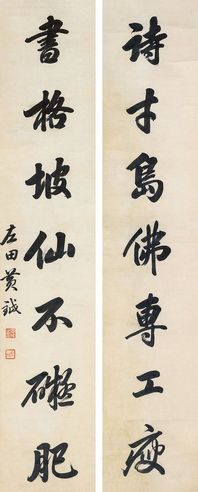 詩才島佛專工瘦
書格坡仙不礙肥
左田黃鉞